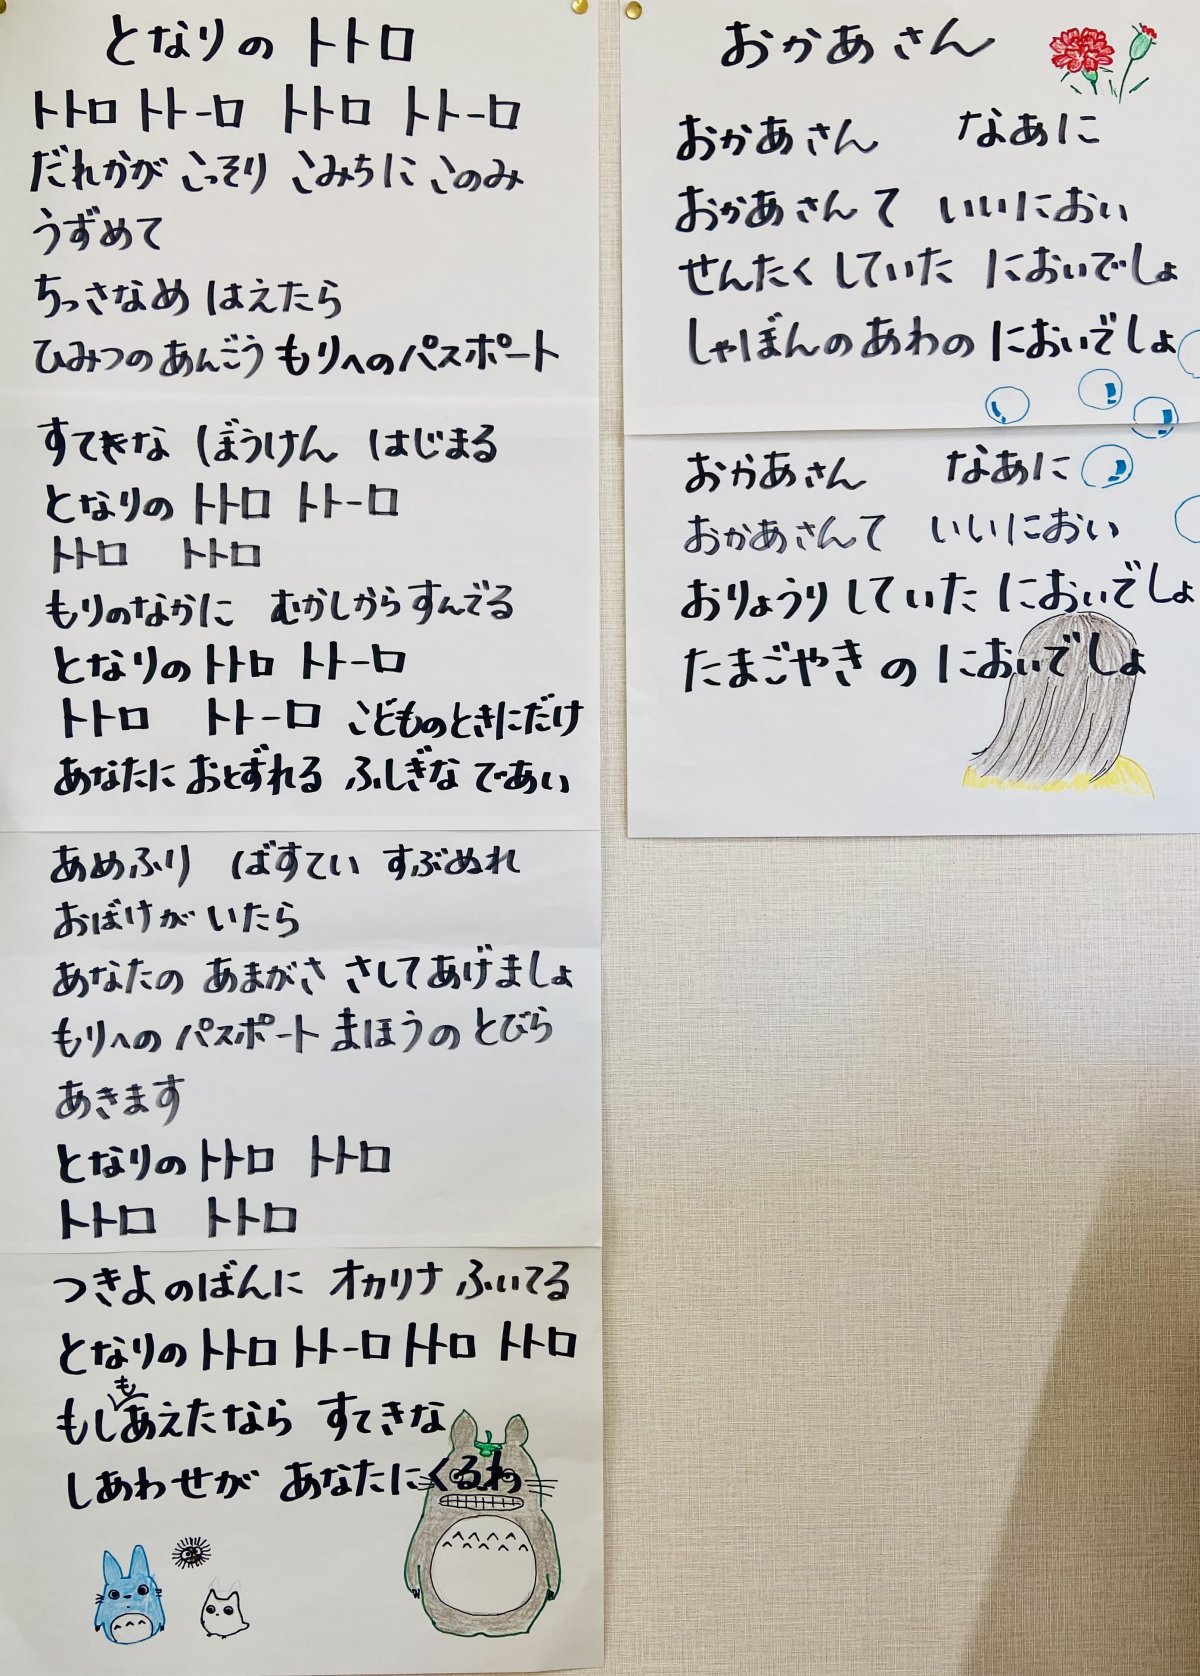 となりの トトロ
トトロ トトーロ トトロ トトーロ
だれかが こっそり こみちに このみ
うずめて
ちっさなめ はえたら
ひみつの あんごう もりへのパスポート
すてきな ぼうけん はじまる
となりの トトロ トトーロ
トトロ トトロ
もりのなかに むかしから すんでる
となりの トトロ トトーロ
トトロ トトーロ こどものときにだけ
あなたに おとずれる ふしぎな であい
あめふり ばすてい ずぶぬれ
おばけが いたら
あなたの あまがさ さしてあげましょ
もりへの パスポート まほうの とびら
あきます
となりの トトロ トトロ
トトロ トトロ
つきよのばんに オカリナ ふいてる
となりの トトロ トトーロ トトロ トトロ
もしもあえたなら すてきな
しあわせが あなたにくるわ
おかあさん
おかあさん なあに
おかあさんて いいにおい
せんたく していた においでしょ
しゃぼんの あわの においでしょ
おかあさん なあに
おかあさんて いいにおい
おりょうり していた においでしょ
たまごやき の においでしょ